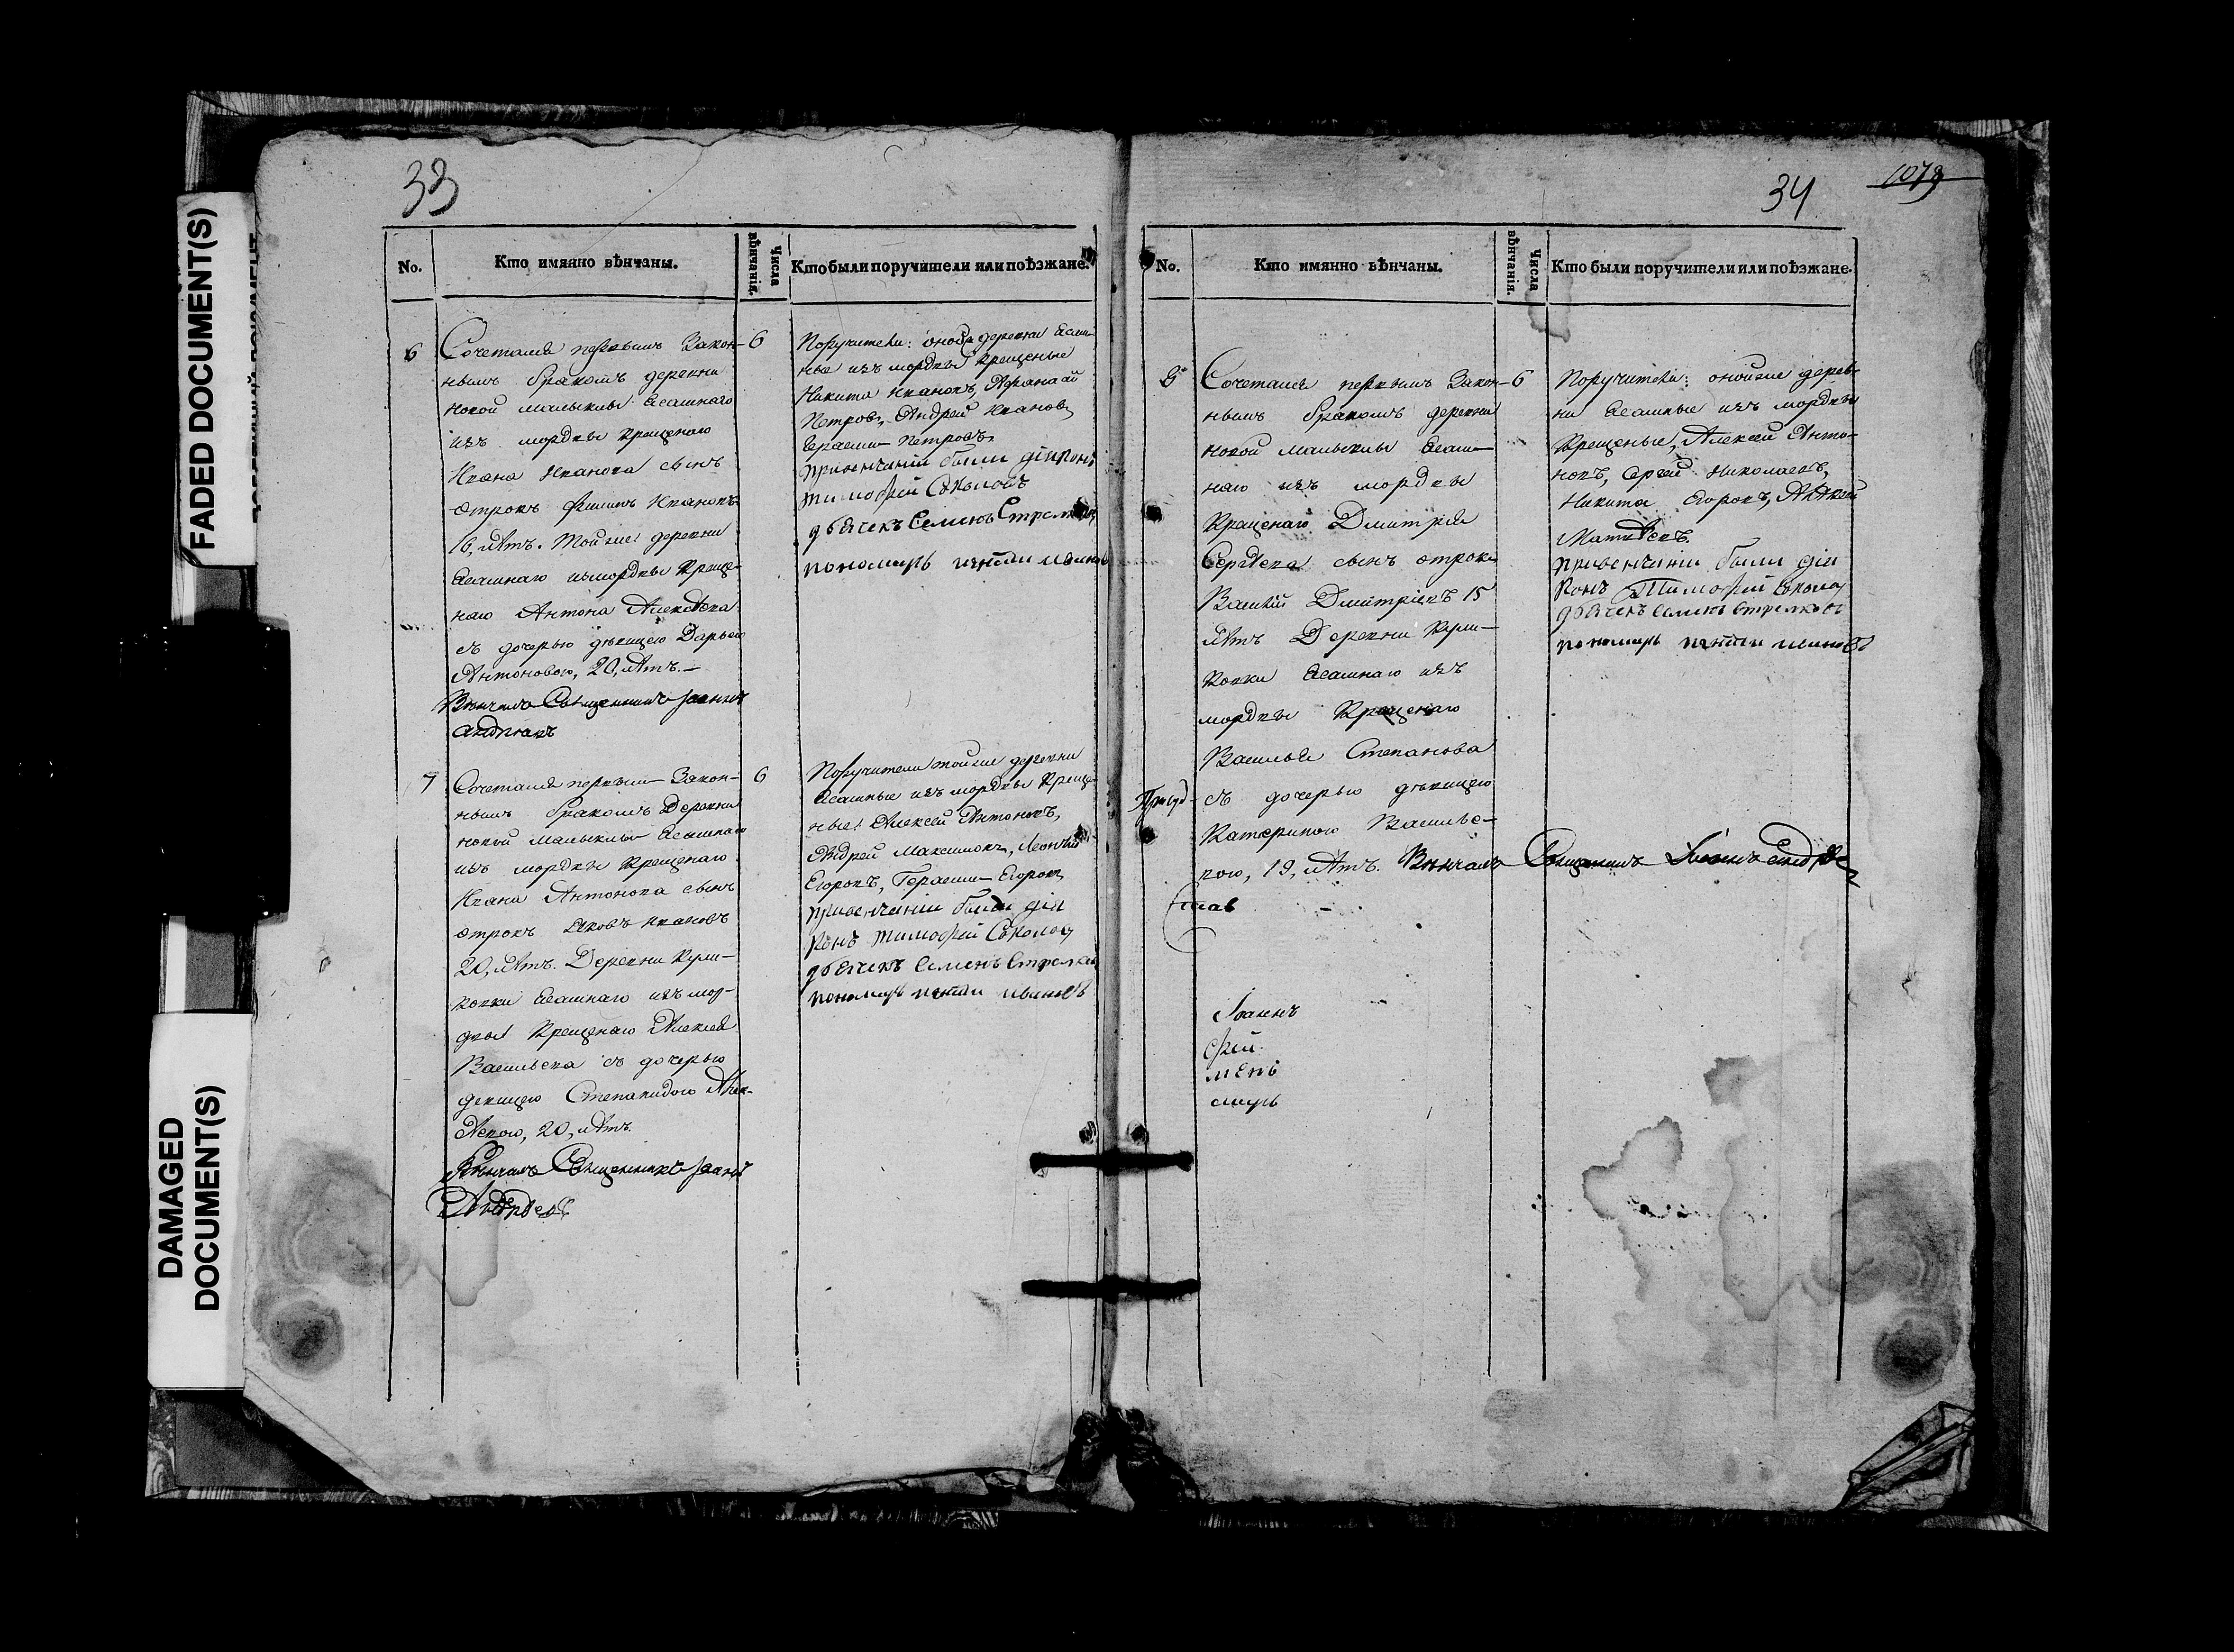 FADED DOCUMENT(S)
DAMAGED
DOCUMENT(S)
33
No.
Кто имянно вѣнчаны.
Числа
вѣнчанія.
Кто были поручители или поѣзжане.
6
Сочетался первымъ Закон-
нымъ бракомъ деревни
новой малыклы ясашнаго
изъ мордвы крещенаго
Ивана Иванова сынъ
отрокъ Филипъ Ивановъ
16, лѣтъ. Той же деревни
ясашнаго изъ мордвы креще-
наго Антона Алексѣева
съ дочерью дѣвицею Дарьею
Антоновою, 20, лѣтъ.
Вѣнчалъ Священникъ Іоаннъ
6
Поручители: оной деревни ясаш-
ные изъ мордвы крещеные
Никита Ивановъ, Афанасій
Петровъ, Андрей Ивановъ
Герасим Петровъ.
привенчаніи были діяконъ
тимофей Соколовъ
дьячекъ Семенъ Стрелков
пономарь ивановъ
7
Сочетался первымъ Закон-
нымъ бракомъ Деревни
новой малыклы ясашнаго
изъ мордвы крещенаго
Ивана Антонова сынъ
отрокъ Яковъ Ивановъ
20, лѣтъ. Деревни
ясашнаго изъ мор-
двы крещенаго Алексея
Васильева съ дочерью
девицею Степанидою Алек-
сѣевою, 20, лѣтъ.
Вѣнчалъ Священникъ Іоаннъ
Андрѣевъ
6
Поручители той же деревни
ясашные изъ мордвы креще-
ные: Алексей Антоновъ,
Андрей Максимовъ, Леонтий
Егоровъ, Герасим Егоров
привенчаніи были дія
конъ тимофей Соколов
дьячекъ Семенъ Стрелков
пономарь ивановъ
34
1079
No.
Кто имянно вѣнчаны.
Числа
вѣнчанія.
Кто были поручители или поѣзжане.
8
Сочетался первымъ Закон-
нымъ бракомъ деревни
новой малыклы ясаш-
наго изъ мордвы
крещенаго Дмитрія
Сергѣева сынъ отрокъ
Василій Дмитріевъ 15
лѣтъ Деревни
ясашнаго изъ
мордвы крещенаго
Василья Степанова
съ дочерью дѣвицею
Катериною Василье-
вою, 19, лѣтъ. Вѣнчалъ Священникъ Іоаннъ
6
Поручители: оной же дерев-
ни ясашные изъ мордвы
крещеные, Алексей Анто-
новъ, Сергей Николаевъ,
Никита Егоровъ,
Матвѣевъ.
привенчаніи были дія
конъ Тимофей Соколов
дьячекъ Семенъ Стрелковъ
пономарь ивановъ
Іоаннъ
фей
менъ
марь